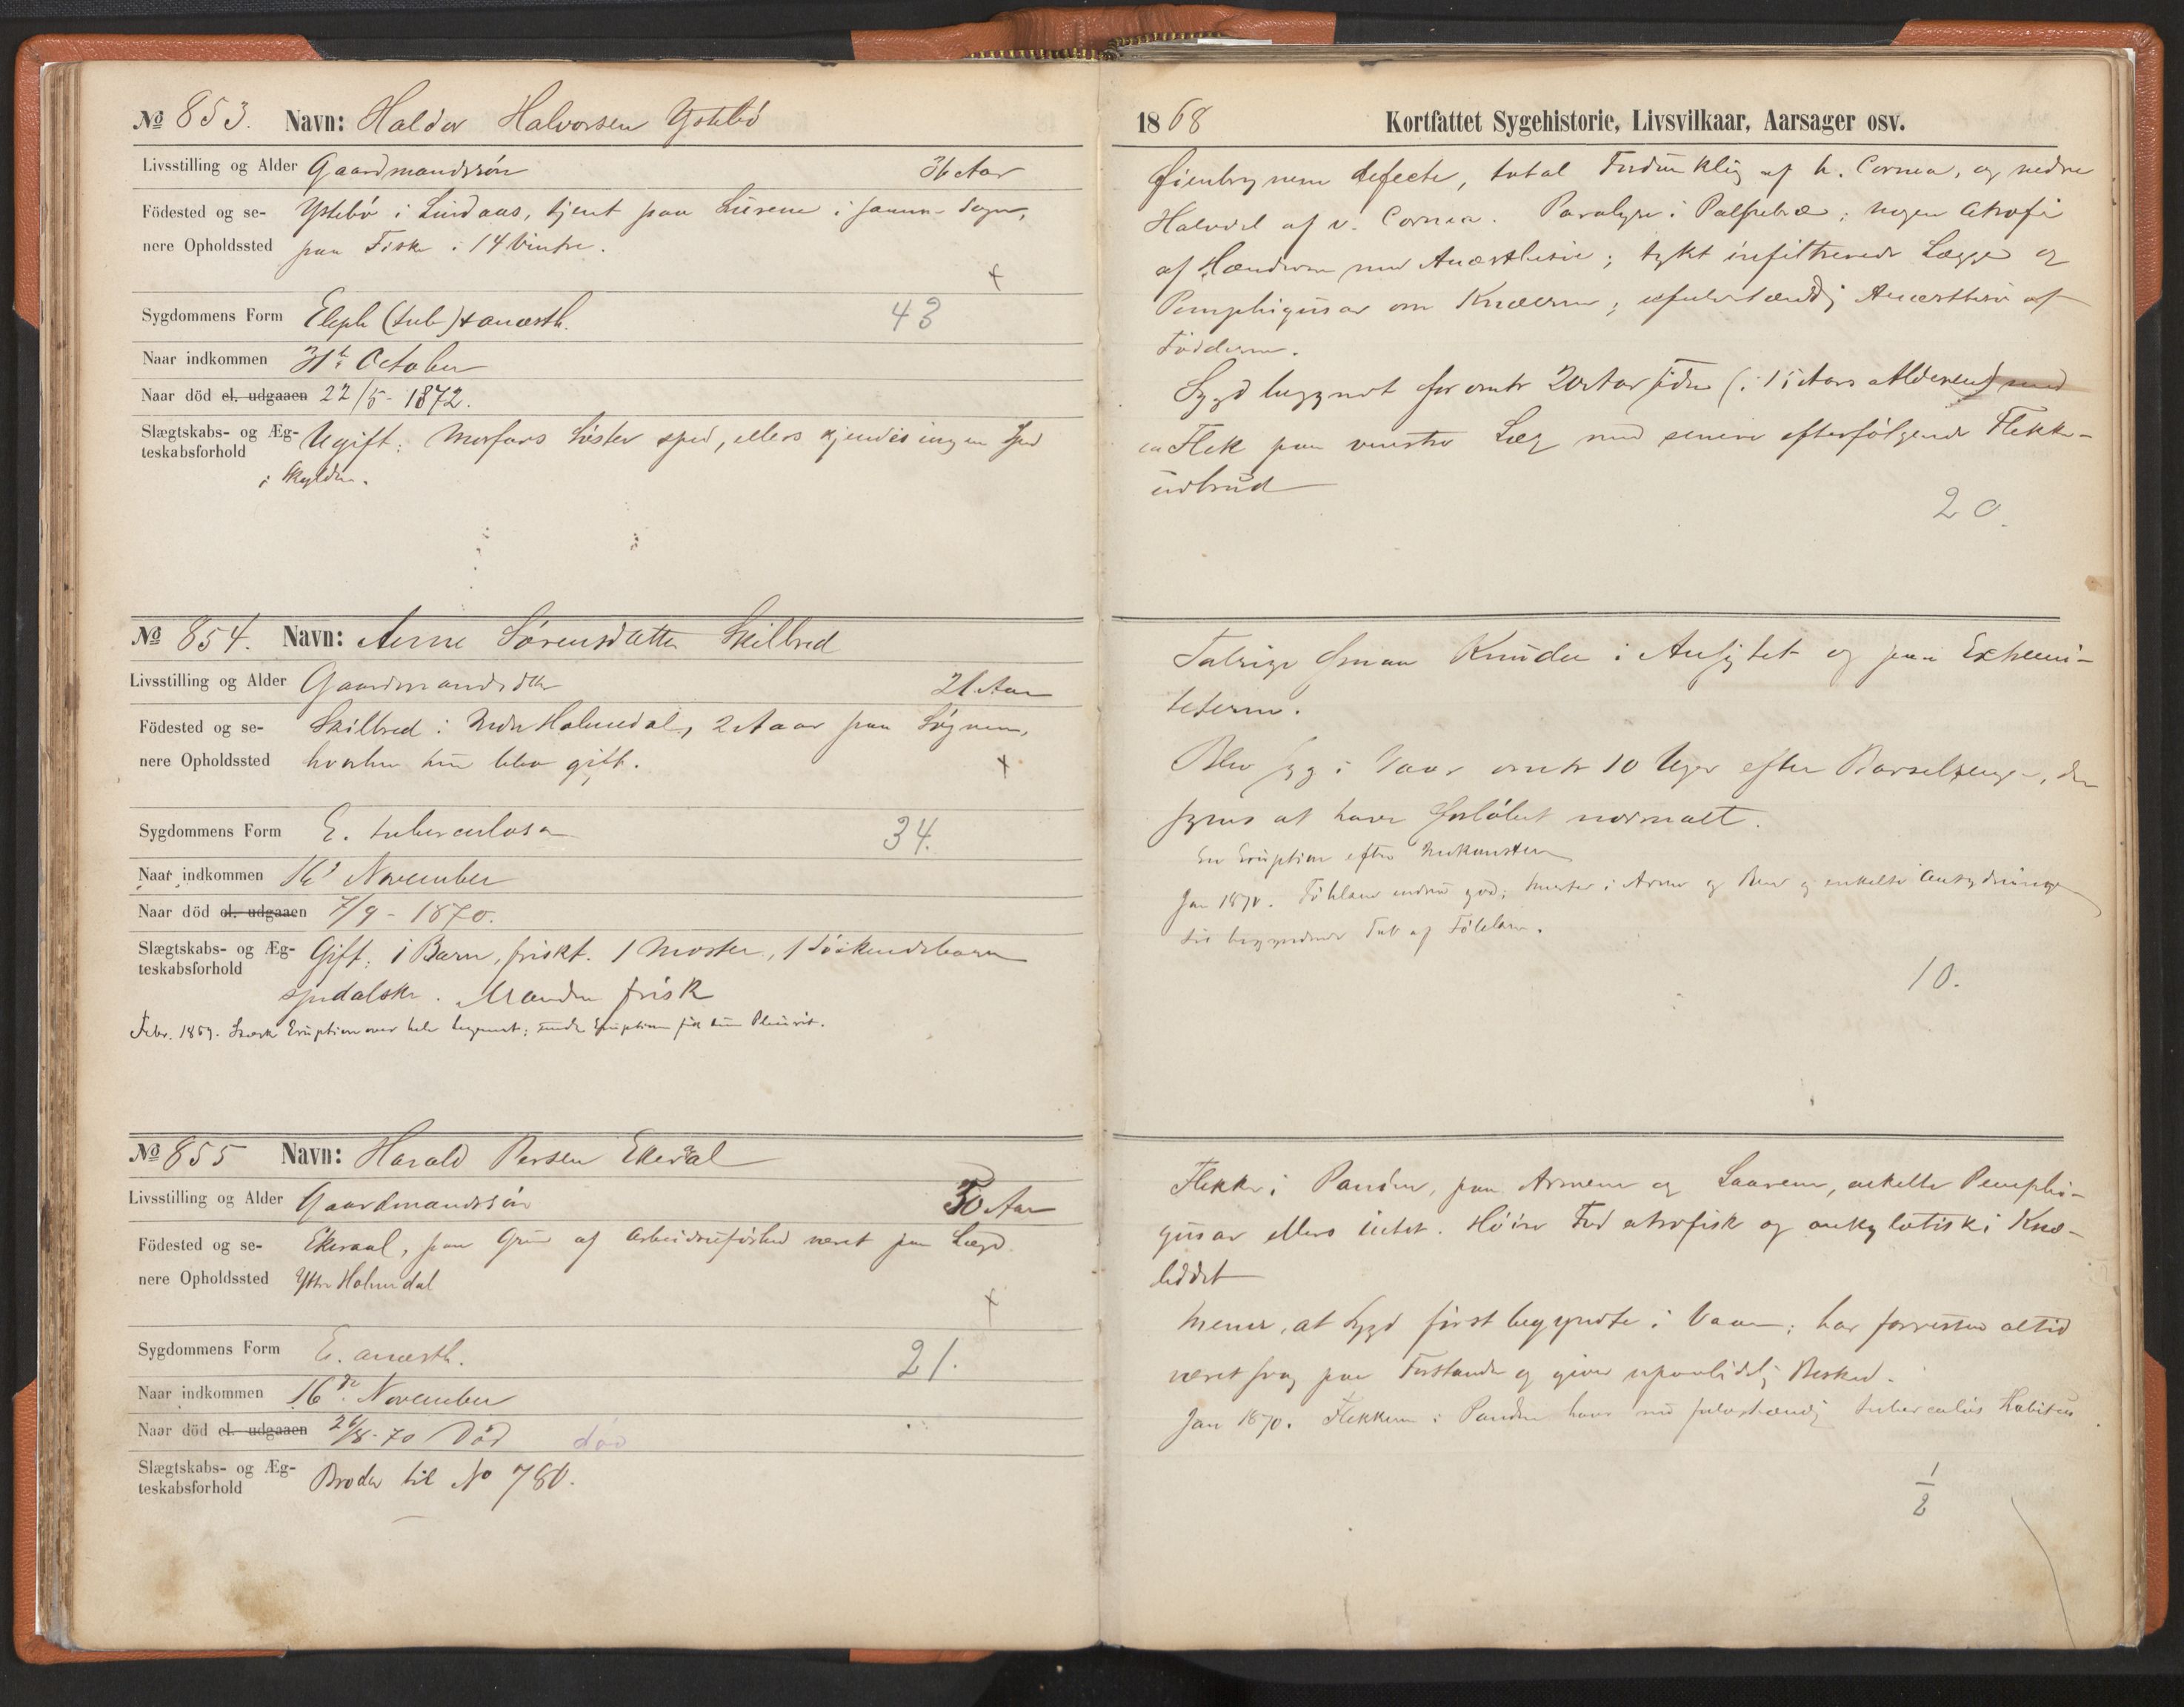 № 853. Navn: Haldor Halvorsen Ystebö
Livsstilling og Alder Gaardmandssön 36 Aar
Födested og se- Ystebö i Lindaas, tjent paa Lurene i samme Sogn,
nere Opholdssted paa Fiske i 14 Vintre.
+
Sygdommens Form Eleph (tub) & anæsth. 43
Naar indkommen 31te October
Naar död el. udgaaen 22/5 - 1872.
Slægtskabs- og Æg- Ugift; Morfars Söster sped, ellers kjendes ingen Spd
teskabsforhold
i Skylden.
№ 854. Navn: Anne Sörensdatter Skilbred
Livsstilling og Alder Gaardmandsdtr 21 Aar
Födested og se- Skilbred i Indre Holmedal, 2 Aar paa Sognem,
nere Opholdssted hvorhen hun blev gift.
+
Sygdommens Form E. tuberculosa 34.
Naar indkommen 16de November
Naar död el. udgaaen 7/9 - 1870.
Slægtskabs- og Æg- Gift; 1 Barn, friskt. 1 Moster, 1 Söskendebarn
teskabsforhold
spedalske. Manden frisk
Febr. 1869. Stærk Eruption over hele Legemet; under Eruptionen fik hun Pleurit.
№ 855 Navn: Harald Persen Ekeraal
Livsstilling og Alder Gaardmandssön 30 Aar
Födested og se- Ekeraal, paa Grund af Arbeidsuförhed været paa Lægd.
nere Opholdssted Ytre Holmedal
+
Sygdommens Form E. anæsth. 21.
Naar indkommen 16de November
Naar död el. udgaaen 26/8 - 70 Död död
Slægtskabs- og Æg- Broder til No 780.
teskabsforhold
1868 Kortfattet Sygehistorie, Livsvilkaar, Aarsager osv.
Öienbrynene defecte, total Fordunkling af h. Cornea, og nedre
Halvdel af v. Cornea. Paralyse i Palpebræ; nogen Atrofi
af Hænderne med Anæsthesie; tykt infiltrerede Lægge og
Pemphigusar om Knæerne; ufuldstændig Anæsthesi af
Födderne.
Sygd begyndt for omtr 20 Aar siden (i 15 Aars Alderen) med
en Flek paa venstre Læg med senere efterfölgende Flekke-
udbrud
20.
Talrige smaa Knuder i Ansigtet og paa Extremi-
teterne.
Blev syg i Vaar omtr 10 Uger efter Barselseng, der
synes at have forlöbet normalt.
En Eruption efter Indkomsten
Jan 1870. Fölelsen endnu god; Smerter i Arme og Ben og enkelte Antydninger
til begyndende Tab af Fölelsen.
10.
Flekker i Panden, paa Armene og Laarene, enkelte Pemphi-
gusar ellers intet. Höire Fod atrofisk og ankylotisk i Knæ-
leddet
Mener, at Sygd först begyndte i Vaar; har forresten altid
været svag paa Forstande og giver upaalidelig Besked.
Jan 1870. Flekkerne i Panden have nu fuldstændig tuberculös Habitus.
1/2